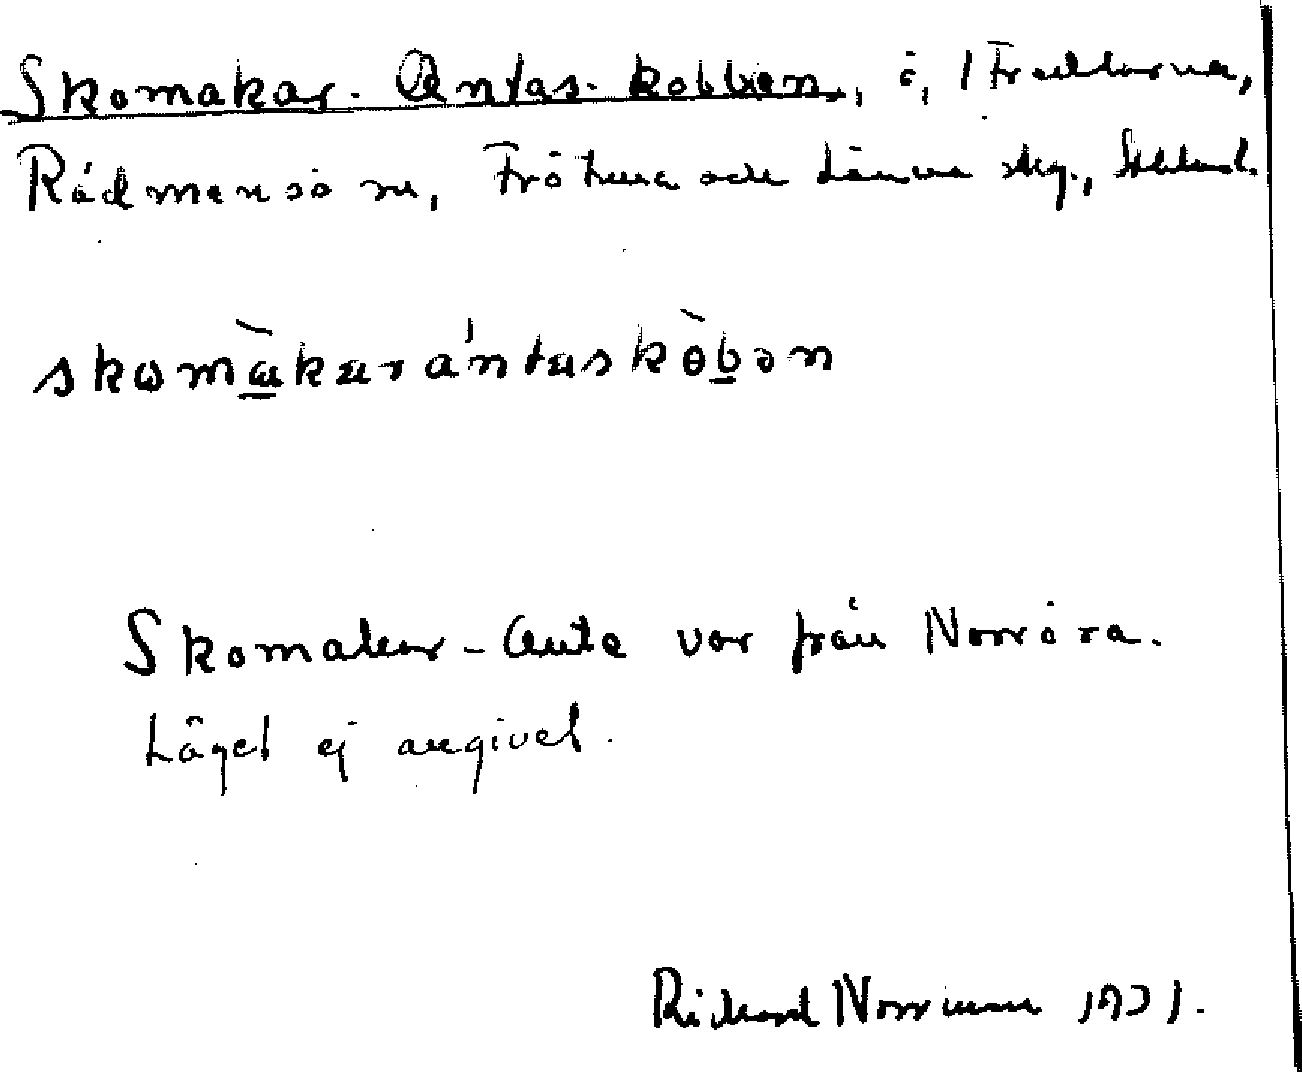 Skomakar-Antas-kobben, ö, i Fredlarna,
Rådmansö sn, Frötuna och Länna skg., Stkhlms l.
skomàkaràntaskòbən
Skomakar-Anta var från Norröra.
Läget ej angivet.
Rickard Norrman 1931.